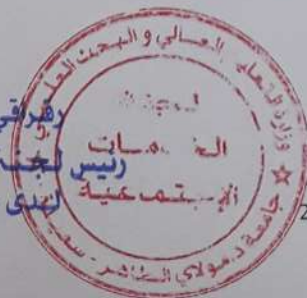 وزارة التعليم العالي و البحث العلمي
لجنة
الخدمات
الإجتماعية
جامعة د. مولاي الطاهر - سعيدة
رئيس لجنة
لدى
2